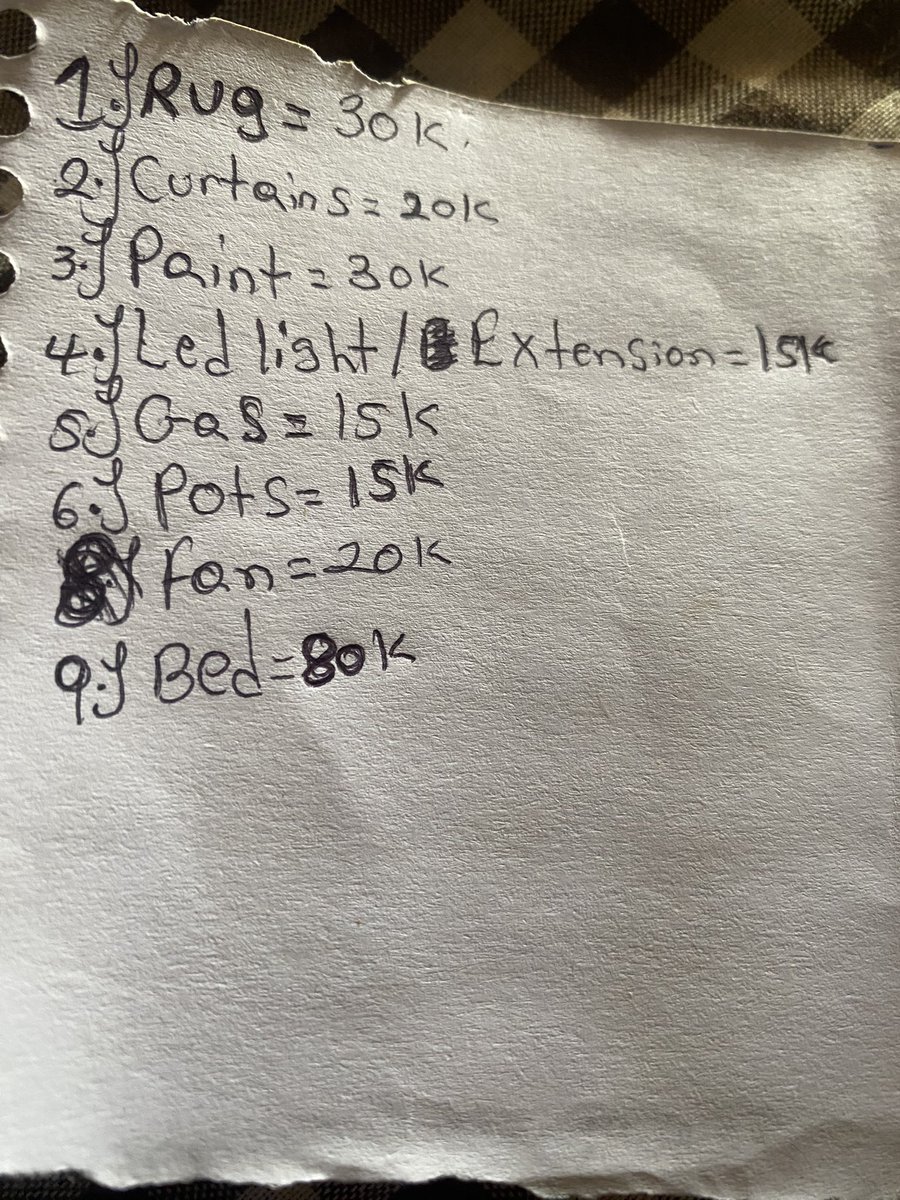 1.) Rug = 30k.
2.) Curtains = 20k
3.) Paint = 30k
4.) Led light / Extension = 15k
5.) Gas = 15k
6.) Pots = 15k
8.) fan = 20k
9.) Bed = 80k